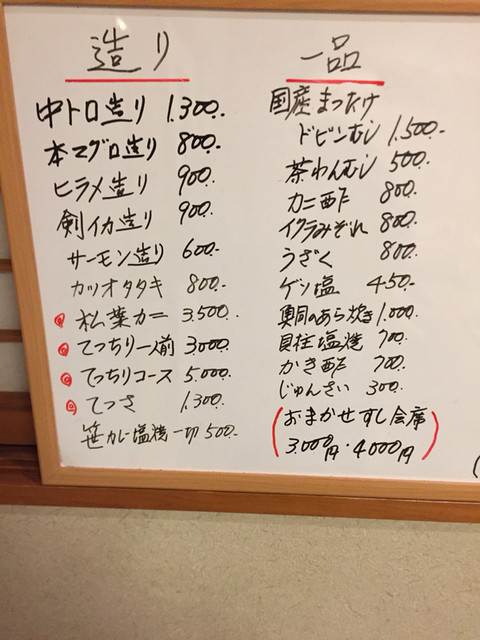 造り
中トロ造り 1.300.-
本マグロ造り 800.-
ヒラメ造り 900.-
剣イカ造り 900.-
サーモン造り 600.-
カツオタタキ 800.-
◎松葉カニ 3.500.-
◎てっちり一人前 3.000.-
◎てっちりコース 5.000.-
◎てっさ 1.300.-
笹カレー塩焼一切 500.-
一品
国産まつたけ
ドビンむし 1.500.-
茶わんむし 500.-
カニ酢 800.-
イクラみぞれ 800.-
うざく 800.-
ゲソ塩 450.-
のあら炊き 1.000.-
貝柱塩焼 700.-
かき酢 700.-
じゅんさい 300.-
(おまかせすし会席
3.000円・4000円)